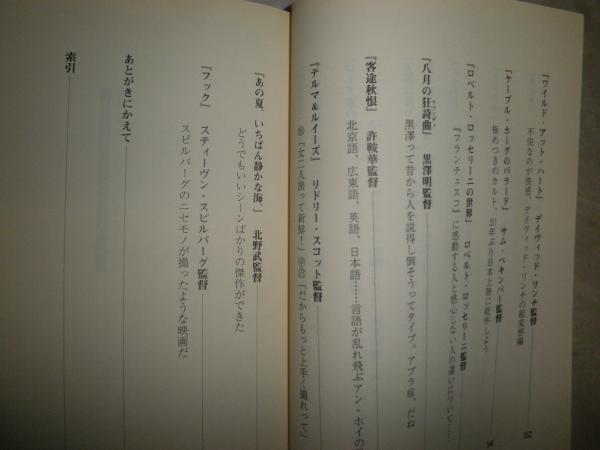 『ワイルド・アット・ハート』 デイヴィッド・リンチ監督
不快なのが快感、デイヴィッド・リンチの超変態編
182
『ケーブル・ホーグのバラード』 サム・ペキンパー監督
極めつきのカルト、20年ぶり日本上陸に乾杯しよう
『ロベルト・ロッセリーニの世界』 ロベルト・ロッセリーニ監督
『フランチェスコ』に感動する人と感心しない人の違いについて……
『八月の狂詩曲』 黒澤明監督
黒澤って昔から人を説得し倒そうってタイプ。アブラ症、だね
『客途秋恨』 許鞍華監督
北京語、広東語、英語、日本語……言語が乱れ飛ぶアン・ホイの
『テルマ&ルイーズ』 リドリー・スコット監督
「女二人旅って新鮮!」 「だからもっと上手く撮れって」
『あの夏、いちばん静かな海。』 北野武監督
どうでもいいシーンばかりの傑作ができた
『フック』 スティーヴン・スピルバーグ監督
スピルバーグのニセモノが撮ったような映画だ
あとがきにかえて
索引